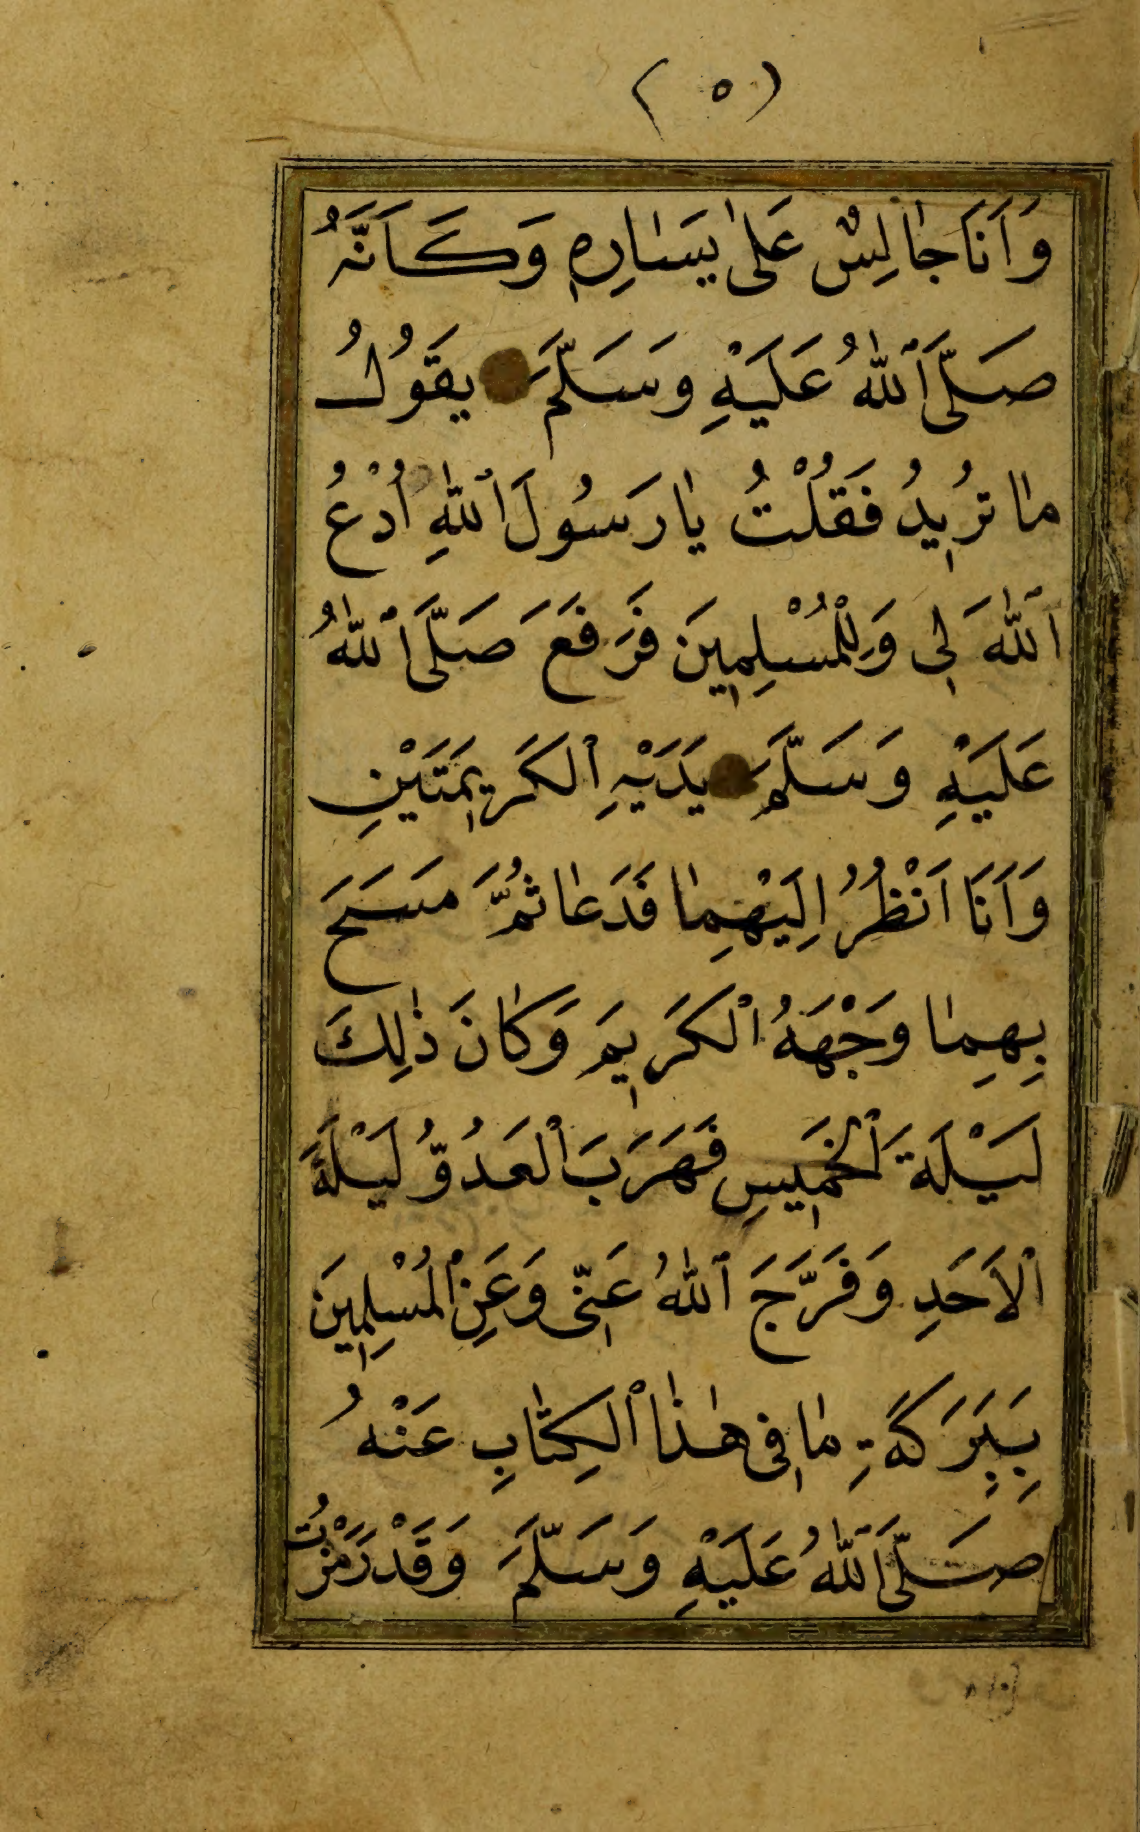 (٥)
وَاَنَا جَالِسٌ عَلٰى يَسَارِهِ وَكَاَنَّهُ
صَلَّى ٱللّٰهُ عَلَيْهِ وَسَلَّمَ يَقُولُ
مَا تُرِيدُ فَقُلْتُ يَا رَسُولَ ٱللّٰهِ اُدْعُ
ٱللّٰهَ لِى وَلِلْمُسْلِمِينَ فَرَفَعَ صَلَّى ٱللّٰهُ
عَلَيْهِ وَسَلَّمَ يَدَيْهِ ٱلكَرِيمَتَيْنِ
وَاَنَا اَنْظُرُ اِلَيْهِمَا فَدَعَا ثُمَّ مَسَحَ
بِهِمَا وَجْهَهُ ٱلكَرِيمَ وَكَانَ ذٰلِكَ
لَيْلَةَ ٱلخَمِيسِ فَهَرَبَ ٱلعَدُوُّ لَيْلَةَ
ٱلاَحَدِ وَفَرَّجَ ٱللّٰهُ عَنِّى وَعَنِ ٱلمُسْلِمِينَ
بِبَرَكَةِ مَا فِى هٰذَا ٱلكِتَابِ عَنْهُ
صَلَّى ٱللّٰهُ عَلَيْهِ وَسَلَّمَ وَقَدْ رَمَزْتُ